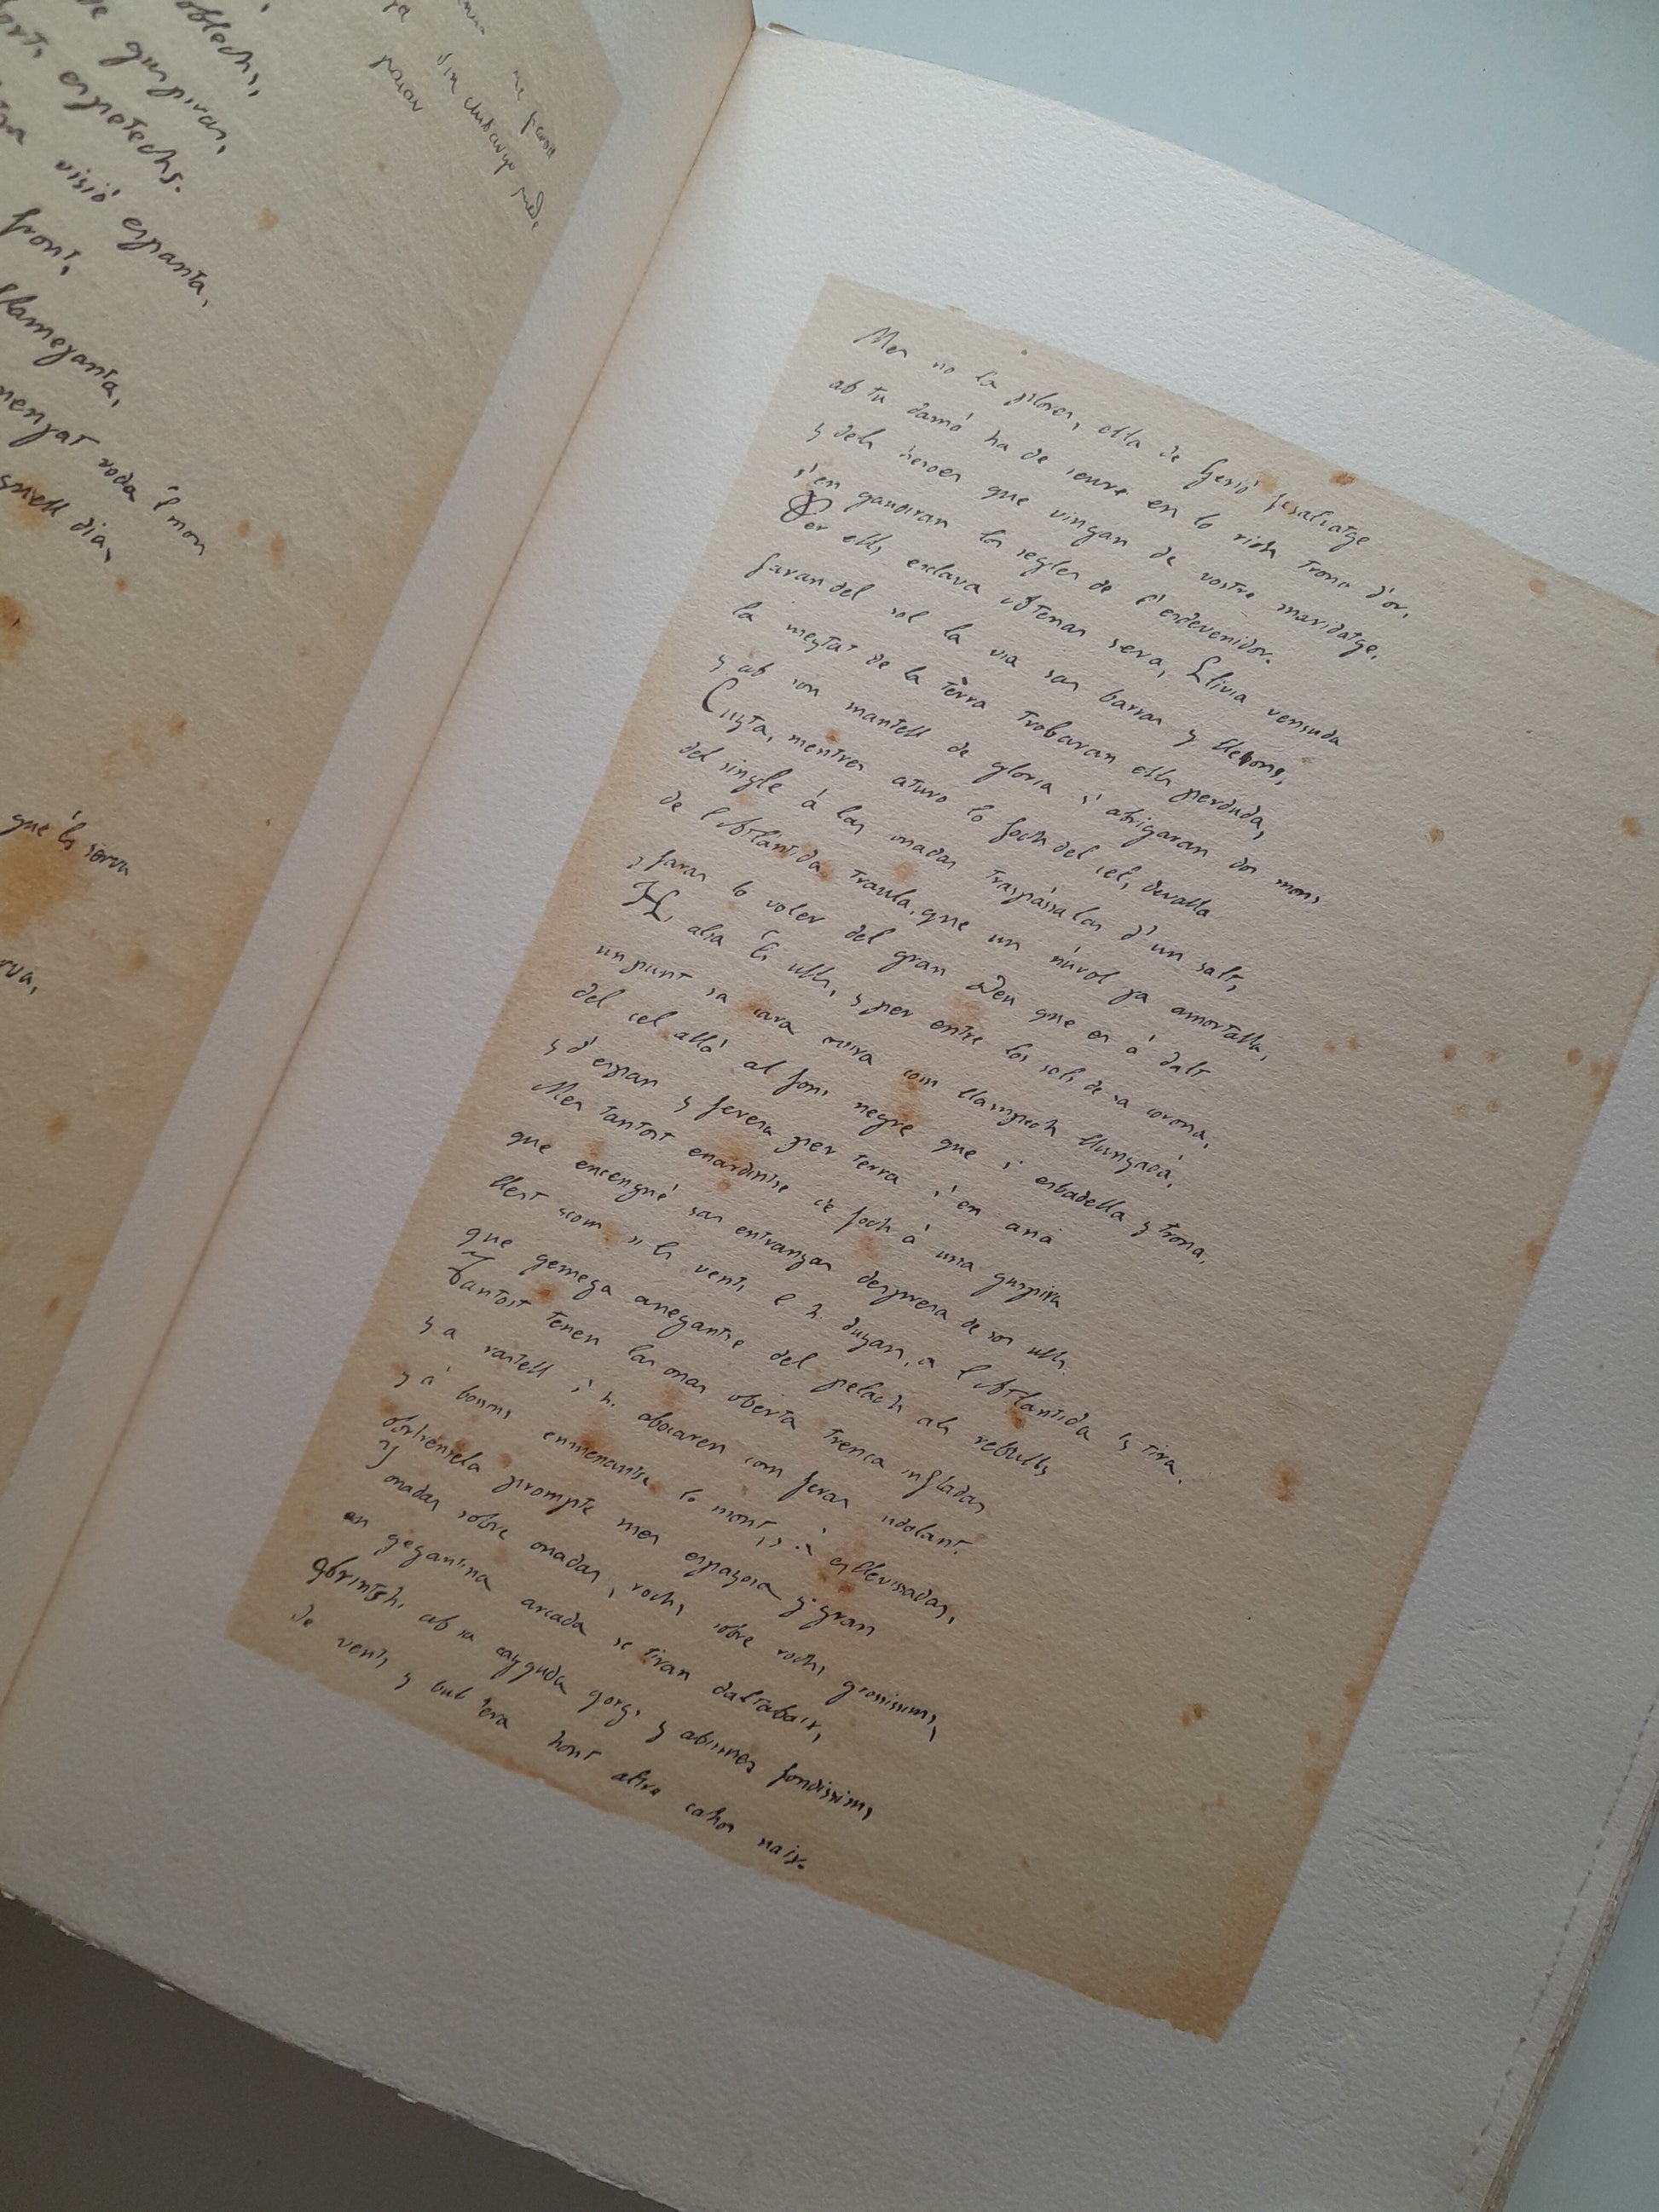 oblechs,
de guspiras,
espetechs.
visió espanta,
front,
flameyanta,
menyat roda 'l mon
aquell dia,
que 'ls serva
Mes no la plores, ella de Gerió fesaltatge
ab tu damó ha de seure en lo rich trono d'or,
y dels heroes que vingan de vostre maridatge,
s'en gaudiran los segles de l'esdevenidor.
Per ells esclava Atenas sera, Llivia vensuda
faran del sol la via sas barras y lleons,
la meytat de la tèrra trobaran ells perduda,
y ab son mantell de gloria s'abrigaran dos mons
Cuyta, mentres aturo lo foch del cel, devalla
del single á las onadas traspássalas d'un salt,
de l'Atlántida traula, que un núvol ja amortalla,
y faras lo voler del gran Deu que es á dalt
H. alsa 'ls ulls, y per entre los sols de sa corona,
un punt sa cara ovira com llampech llunyadá,
del cel allá al fons negre que s'esbadella y trona,
y d'espan y feresa per terra s'en aná
Mes tantost enardintse de foch á una guspira
que encengué sas entranyas despresa de sos ulls.
llest com si 'ls vents l' h. duyan, a l'Atlántida 's tira,
que gemega anegantse del pelach als rebulls
Tantost tenen las onas oberta trenca infladas
y a rastell s' h. abocaren com feras udolant.
y á bosins enmenantse lo mont, y á esllevissadas,
obrirensela prompte mes espayosa y gran
Y onadas sobre onadas, rochs sobre rochs grossissims,
en gegantina arcada se tiran daltabaix,
obrintshi ab sa cayguda gorgs y abismes fondissims
de vents y bull'era hont altre cahos naix.